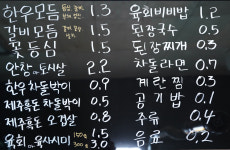 한우모듬 1.3
갈비모듬 1.5
꽃등심 1.5
안창 or 토시살 2.2
한우 차돌박이 0.9
제주흑돈 차돌박이 0.5
제주흑돈 오겹살 0.8
육회 or 육사시미 150g 1.5
300g 3.0
육회비빔밥 1.2
된장국수 0.5
된장찌개 0.3
차돌라면 0.7
계란찜 0.3
공기밥 0.1
주류 0.4
음료 0.2